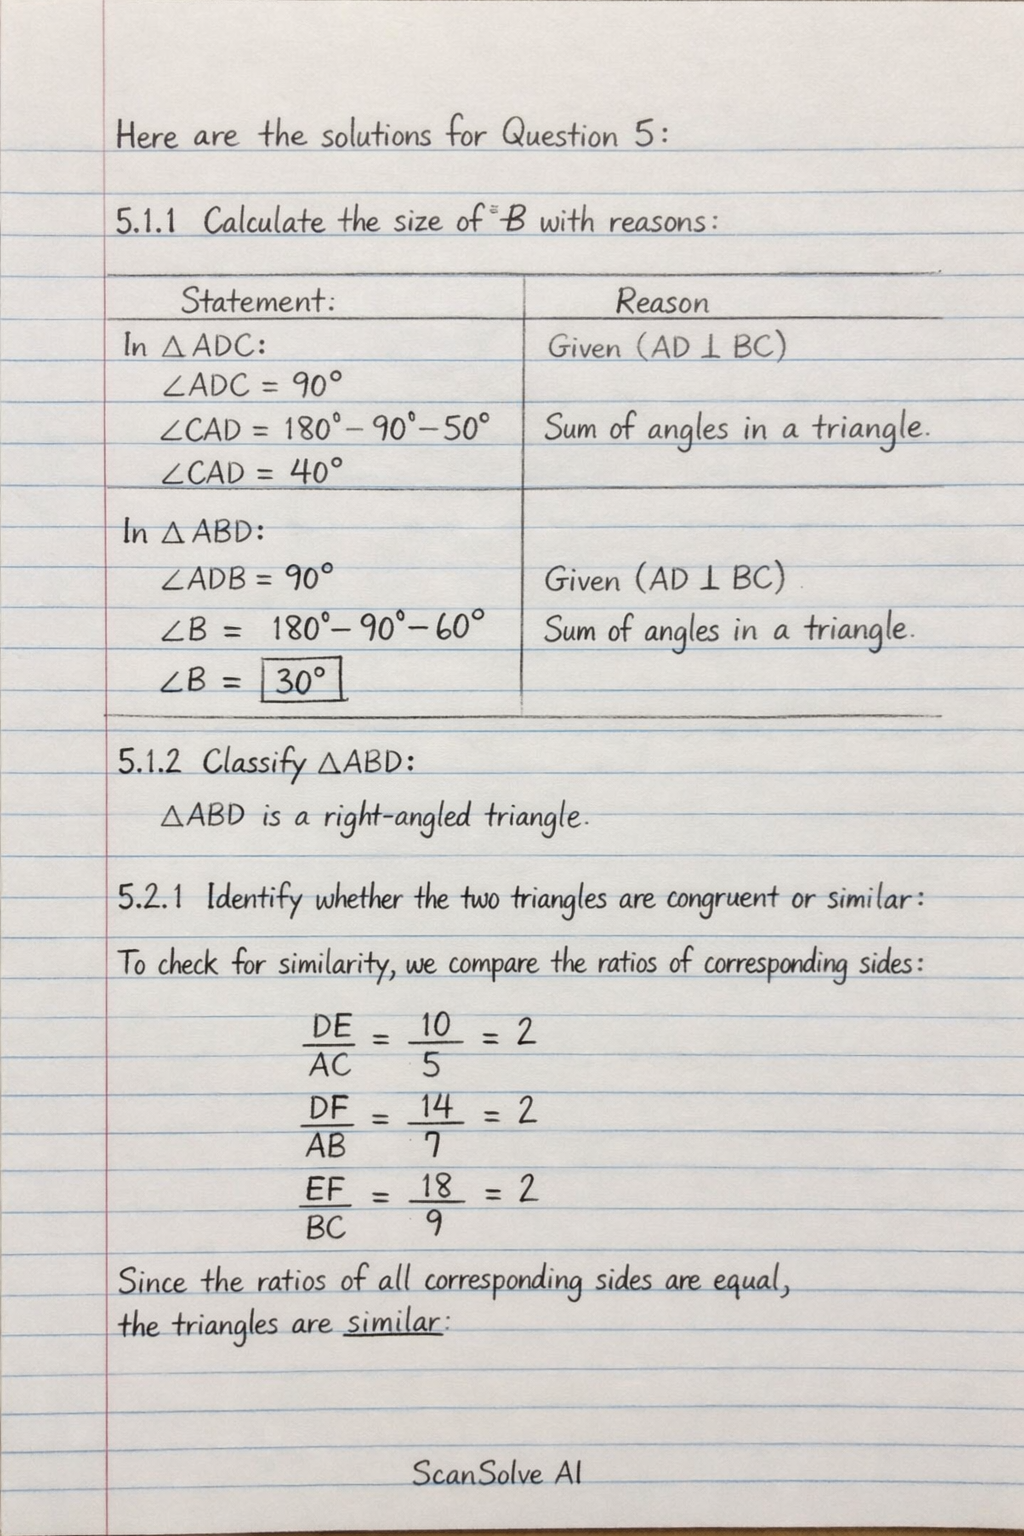 Here are the solutions for Question 5:
5.1.1 Calculate the size of B with reasons:
Statement: Reason
In △ ADC: Given (AD ⊥ BC)
∠ADC = 90°
∠CAD = 180° – 90° – 50° Sum of angles in a triangle.
∠CAD = 40°
In △ ABD:
∠ADB = 90° Given (AD ⊥ BC)
∠B = 180° – 90° – 60° Sum of angles in a triangle.
∠B = 30°
5.1.2 Classify △ABD:
△ABD is a right-angled triangle.
5.2.1 Identify whether the two triangles are congruent or similar:
To check for similarity, we compare the ratios of corresponding sides:
DE/AC = 10/5 = 2
DF/AB = 14/7 = 2
EF/BC = 18/9 = 2
Since the ratios of all corresponding sides are equal,
the triangles are similar:
ScanSolve AI